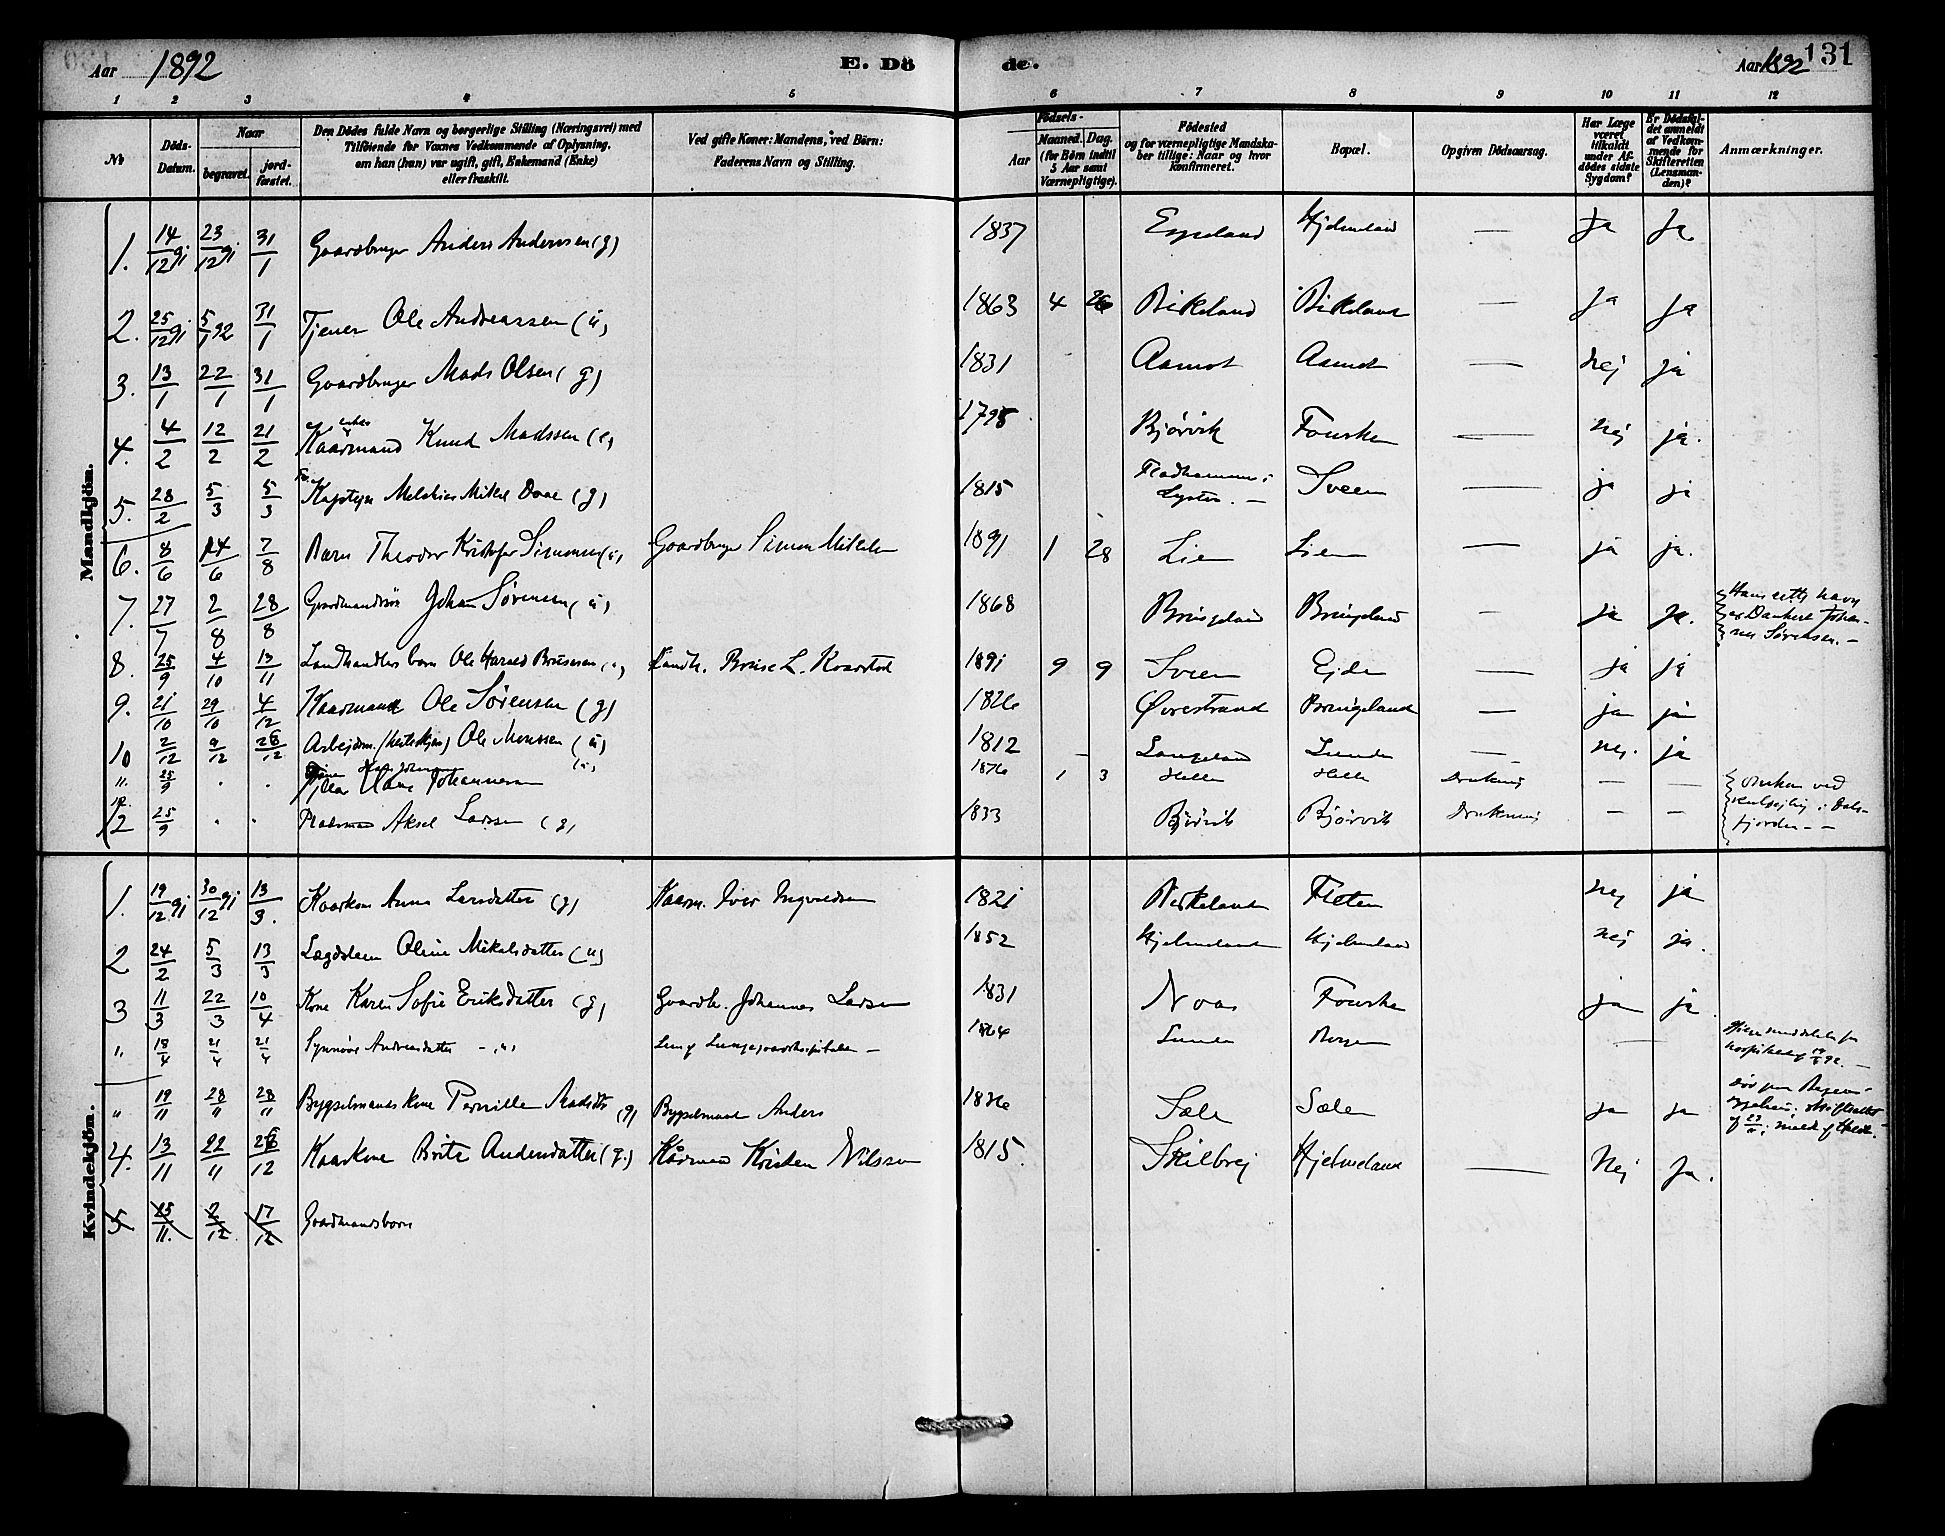 Aar 1892 E. Dö
de. Aar 1892 131
1 2 3 4 5 6 7 8 9 10 11 12
No
Döds-Datum.
Naar
begravet.
jord-fæstet.
Den Dödes fulde Navn og borgerlige Stilling (Næringsvei) med
Tilföiende for Voxnes Vedkommende af Oplysning,
om han (hun) var ugift, gift, Enkemand (Enke)
eller fraskilt.
Ved gifte Koner: Mandens, ved Börn:
Faderens Navn og Stilling.
Födsels-
Aar
Maaned. Dag.
(for Börn indtil
5 Aar samt
Værnepligtige).
Födested
og for værnepligtige Mandska-
ber tillige: Naar og hvor
konfirmeret.
Bopæl.
Opgiven Dödsaarsag.
Har Læge
været
tilkaldt
under Af-
dödes sidste
Sygdom?
Er Dödsfal-
det anmeldt
af Vedkom-
mende for
Skifteretten
(Lensman-
den)?
Anmærkninger.
Mandkjön.
1. 14/12 91 23/12 91 31/1 Gaardbruger Anders Andersen (g) 1837 Espeland Hjelmeland — Ja Ja
2. 25/12 91 5/1 92 31/1 Tjener Ole Andreassen (u) 1863 4 26 Birkeland Birkeland — Ja Ja
3. 13/1 22/1 31/1 Gaardbruger Mads Olsen (g) 1831 Aamot Aamot — Nej ja
4. 4/2 12/2 21/2 Kaarmand Knud Madssen (e) 1795 Bjørvik Fourke — Nej ja.
5. 28/2 5/3 5/3 Melchior Mikal Daae (g) 1815 Lyster. — Sveen — ja ja
6. 8/6 14/6 7/8 Barn Theodor Kristofer Simonsen (u) Gaardbruger Simon Mikalsen 1891 1 28 Lien Lien — ja ja.
7. 27/7 2/8 28/8 Gaardmandssøn Johan Sørensen (u) 1868 Bringeland Bringeland — ja ja. Hans rette navn
er Dankert Johan-
nes Sørensen. —
8. 25/9 4/10 13/11 Landhandlers barn Ole Harald (u) Landh. L. Kvarstad 1891 9 9 Sveen Ejde ja ja
9. 21/10 29/10 4/12 Kaarmand Ole Sørensen (g) 1826 Øvrestrand Bringeland — ja ja
10 2/12 9/12 26/12 Ole Monssen (u) 1812 — Langeland Lunde — nej. ja
" 25/9 . . Hans Johannesen (u) 1876 1 3 Helle Helle Drukning — — ved
12 25/9 . . Pladsmand Aksel Larsen (g) 1833 Bjørvik Bjørvik Drukning — — i Dals-
fjorden — —
Kvindekjön.
1. 19/12 91 30/12 91 13/3. Kaarkone Anna Larsdatter (g) Kaarm. Iver Ingvaldsen 1821 Birkeland Fleten nej ja
2 24/2 5/3 13/3 Lægdslem Oline Mikalsdatter (u) 1852 Hjelmeland Hjelmeland nej ja.
3 11/3 22/3 10/4 Kone Karen Sofie Eriksdatter (g) Gaardb. Johannes Larsen 1831 Noas Fourke ja ja
" 18/4 21/4 21/4 Synnøve Andreasdatter — Lungegaardshospitalet — 1864 Lunde Bergen —
" 19/11 28/11 28/11 Bygselmands kone Pernille Madsdtr (g) Bygselmand Anders 1826 Sæle Sælen ja ja
4. 13/11 22/11 26/12 Kaarkone Brite Andersdatter (g.) Kårmand Kristen Nilssen 1815 Skilbrej Hjelmeland — Nej Ja.
5 25/11. 2/12 17/12 Gaardmandsbarn